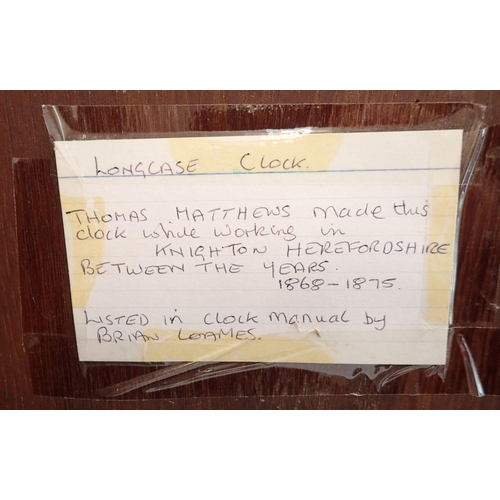 LONGCASE CLOCK.
THOMAS MATTHEWS made this
clock while working in
KNIGHTON HEREFORDSHIRE
BETWEEN THE YEARS.
1868-1875.
LISTED in CLOCK MANUAL by
BRIAN LOAMES.